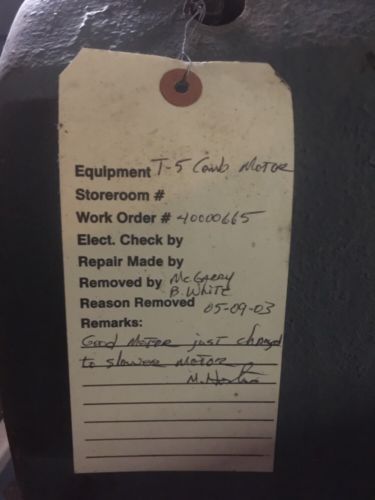 Equipment T-5 Comb MOTOR
Storeroom #
Work Order # 40000665
Elect. Check by
Repair Made by
Removed by McGARRY
B. WHITE
Reason Removed 05-09-03
Remarks:
Good MOTOR just changed
to slower MOTOR
M.